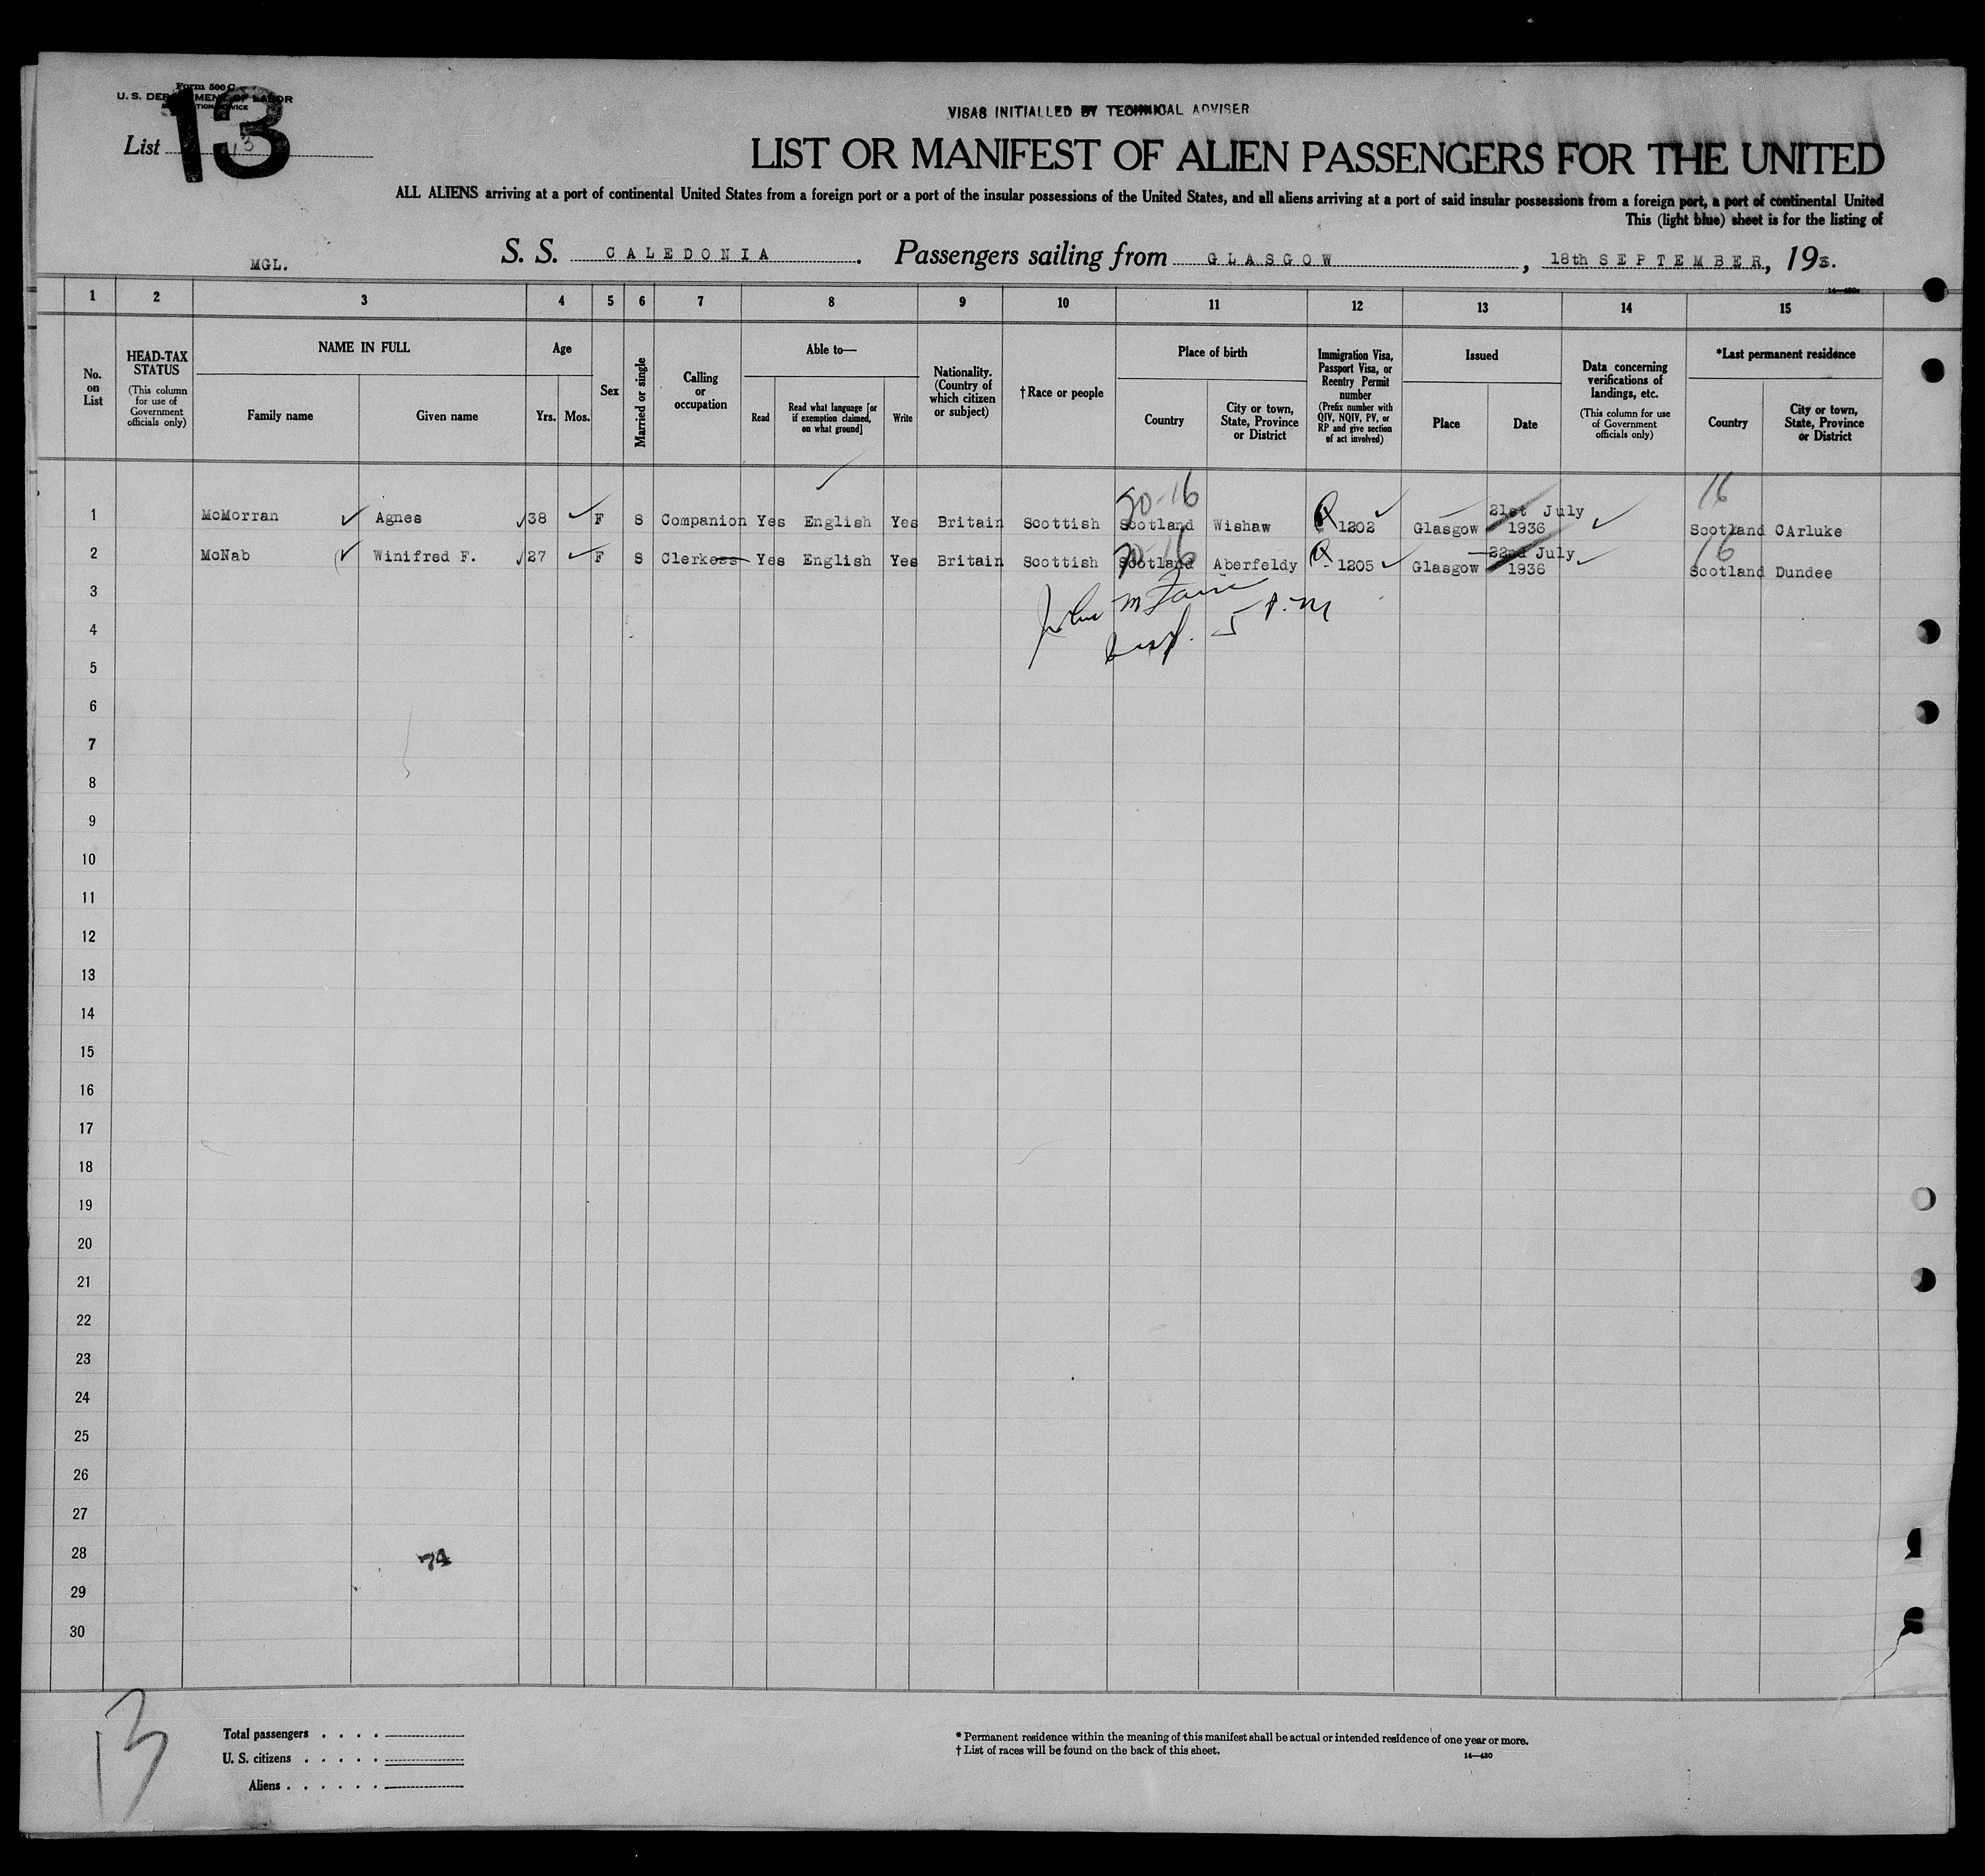 Form 500 C
U. S. DEPARTMENT OF LABOR
List 13
13
VISAS INITIALLED BY TECHNICAL ADVISER
LIST OR MANIFEST OF ALIEN PASSENGERS FOR THE UNITED
ALL ALIENS arriving at a port of continental United States from a foreign port or a port of the insular possessions of the United States, and all aliens arriving at a port of said insular possessions from a foreign port, a port of continental United
This (light blue) sheet is for the listing of
MGL. S. S. CALEDONIA. Passengers sailing from GLASGOW, 18th SEPTEMBER, 193.
1 2 3 4 5 6 7 8 9 10 11 12 13 14 15
No. on List
HEAD-TAX STATUS
(This column for use of Government officials only)
NAME IN FULL
Family name
Given name
Age
Yrs. Mos.
Sex
Married or single
Calling or occupation
Able to—
Read
Read what language [or if exemption claimed, on what ground]
Write
Nationality. (Country of which citizen or subject)
† Race or people
Place of birth
Country
City or town, State, Province or District
Immigration Visa, Passport Visa, or Reentry Permit number
(Prefix number with QIV, NQIV, PV, or RP and give section of act involved)
Issued
Place
Date
Data concerning verifications of landings, etc.
(This column for use of Government officials only)
*Last permanent residence
Country
City or town, State, Province or District
16
1 McMorran Agnes 38 F S Companion Yes English Yes Britain Scottish Scotland Wishaw Q 1202 Glasgow 21st July 1936 Scotland CArluke
16
2 McNab Winifred F. 27 F S Clerkess Yes English Yes Britain Scottish Scotland Aberfeldy Q 1205 Glasgow 22nd July 1936 Scotland Dundee
3
John M
4
5 P.M
5
6
7
8
9
10
11
12
13
14
15
16
17
18
19
20
21
22
23
24
25
26
27
28
74
29
30
13
Total passengers . . . .
U. S. citizens . . . . .
Aliens . . . . . .
* Permanent residence within the meaning of this manifest shall be actual or intended residence of one year or more.
† List of races will be found on the back of this sheet.
14—430